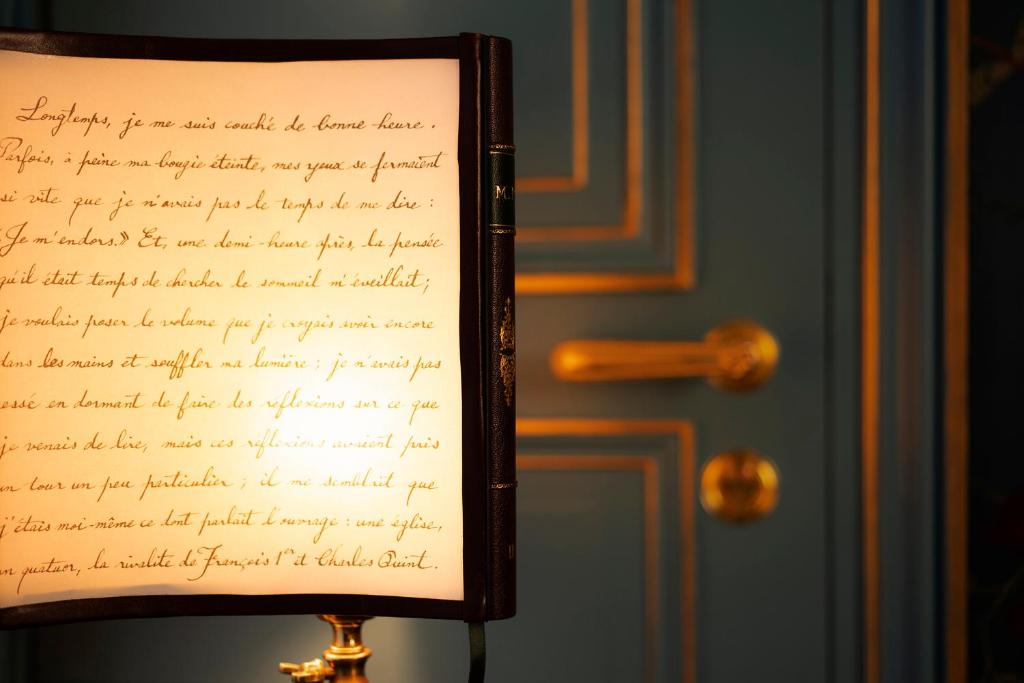 Longtemps, je me suis couché de bonne heure.
Parfois, à peine ma bougie éteinte, mes yeux se fermaient
si vite que je n'avais pas le temps de me dire :
"Je m'endors.» Et, une demi-heure après, la pensée
qu'il était temps de chercher le sommeil m'éveillait ;
je voulais poser le volume que je croyais avoir encore
dans les mains et souffler ma lumière ; je n'avais pas
cessé en dormant de faire des réflexions sur ce que
je venais de lire, mais ces réflexions avaient pris
un tour un peu particulier ; il me semblait que
j'étais moi-même ce dont parlait l'ouvrage : une église,
un quatuor, la rivalité de François 1er et Charles Quint.